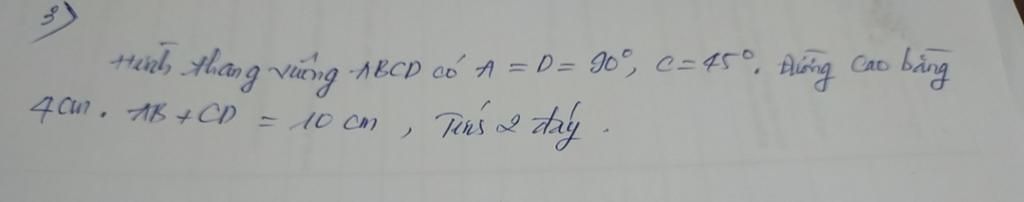 3)
Hình thang vuông ABCD có A = D = 90°, C = 45°. Đường cao bằng
4cm. AB + CD = 10 cm, Tính 2 đáy.